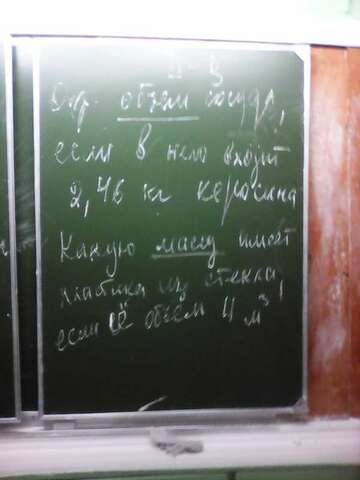 II-В
Опр. объем сосуда,
если в него входит
2,46 кг керосина
Какую массу имеет
пластика из стекла,
если её объем 4 м³